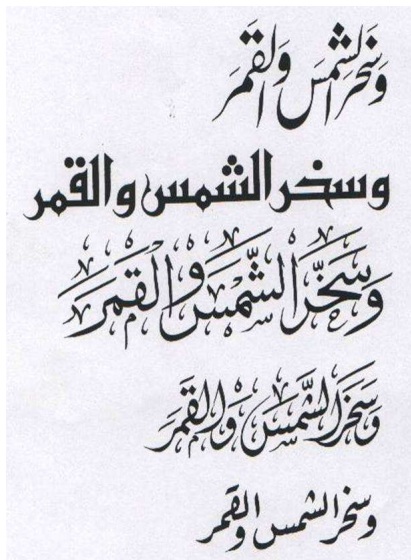 وَسَخَّرَ الشَّمسَ وَالقَمَرَ
وسخر الشمس والقمر
وَسَخَّرَ الشَّمْسَ وَالْقَمَرَ
وَسَخَّرَ الشَّمْسَ وَالْقَمَرَ
وسخر الشمس والقمر